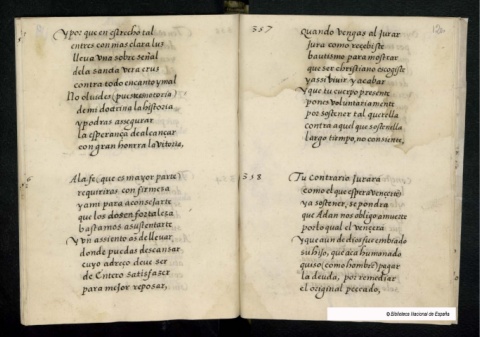 Y por que en estrecho tal
entres con mas clara lus
lleva vna sobre señal
de la sancta vera crus
contra todo encanto y mal
No oluides (pues es notoria)
de mi doctrina la historia
y podras assegurar
la esperança de alcançar
con gran honrra la vitoria,
A la fe, que es mayor parte
requeriras con firmesa
y a mi para aconsejarte
que los dosen fortalesa
bastamos a sustentarte
Y vn assiento as de lleuar,
donde puedas descansar
cuyo adreço deue ser
de Entero satisfaser
para mejor reposar,
357
Quando vengas al Jurar
jura como reçebiste
bautismo para mostrar
que ser christiano escogiste
y assi viuir y acabar
Y que tu cuerpo presente
pones voluntariamente
por sostener tal querella
contra aquel que sostenella
largo tiempo, no consiente,
358
Tu contrario Jurara
como el que espera vencerte
ya sostener, se pondra
que Adan nos obligo a muerte
por lo qual el vençera
Y que aun de dios fue embiado
su hijo, que aca humanado
quiso (como hombre) pagar
la deuda, por remediar
el original peccado,
© Biblioteca Nacional de España